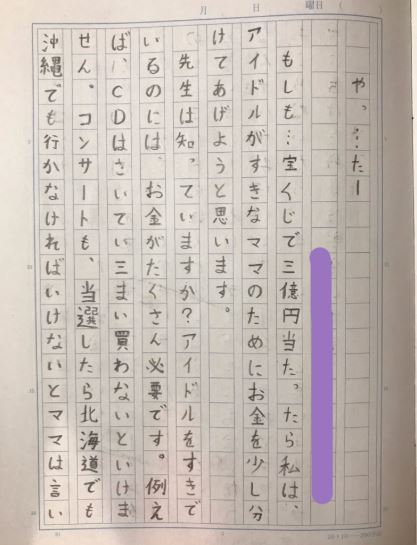 月 日 曜日 ( )
やっ…たー
もしも…宝くじで三億円当たったら私は、
アイドルがすきなママのためにお金を少し分
けてあげようと思います。
先生は知っていますか？アイドルをすきで
いるのには、お金がたくさん必要です。例え
ば、CDはさいてい三まい買わないといけま
せん。コンサートも、当選したら北海道でも
沖縄でも行かなければいけないとママは言い